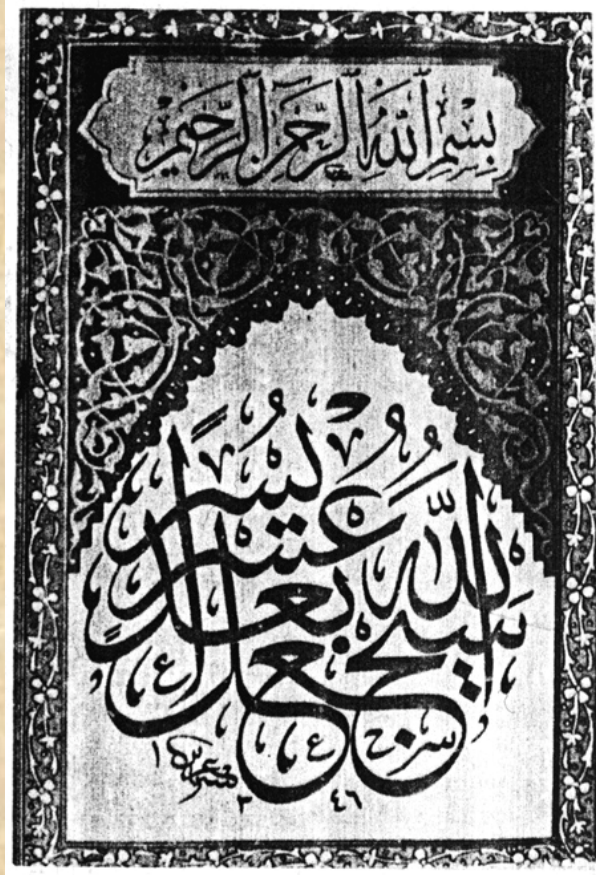 بِسْمِ ٱللَّهِ ٱلرَّحْمَنِ ٱلرَّحِيمِ
سَيَجْعَلُ ٱللَّهُ بَعْدَ عُسْرٍ يُسْرًا